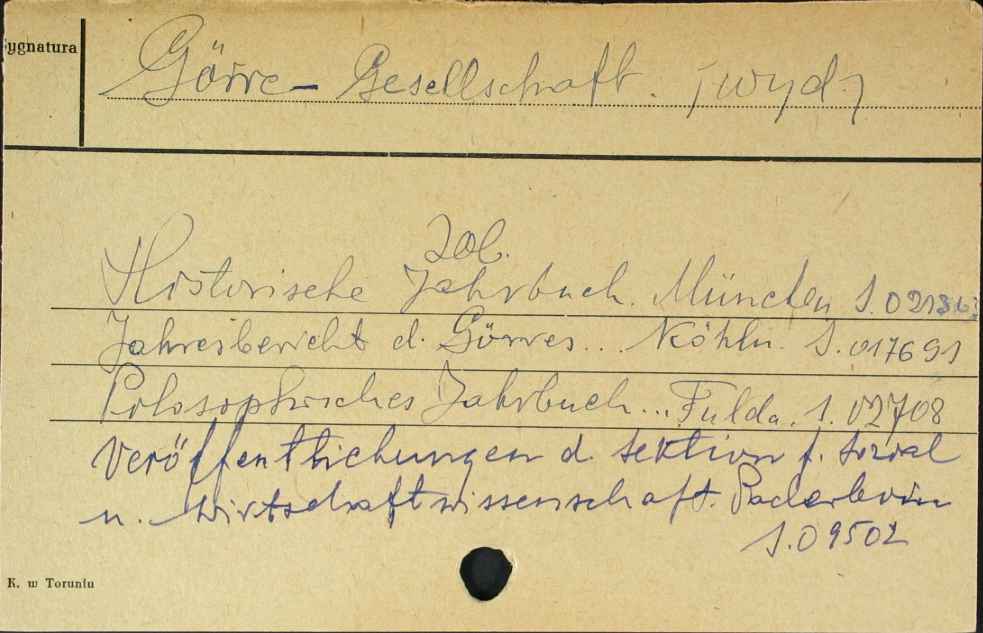 Sygnatura
Görre- Gesellschaft. (wyd.)
zob.
Historische Jahrbuch. München S.
Jahresbericht d. Görres.. Köhln. S. 017691
Philosophisches Jahrbuch... Fulda. S. 02708
Veröffentlichungen d. Sektion f. Sozial
u. Wirtschaftswissenschaft. Paderborn
S.09502
K. w Toruniu